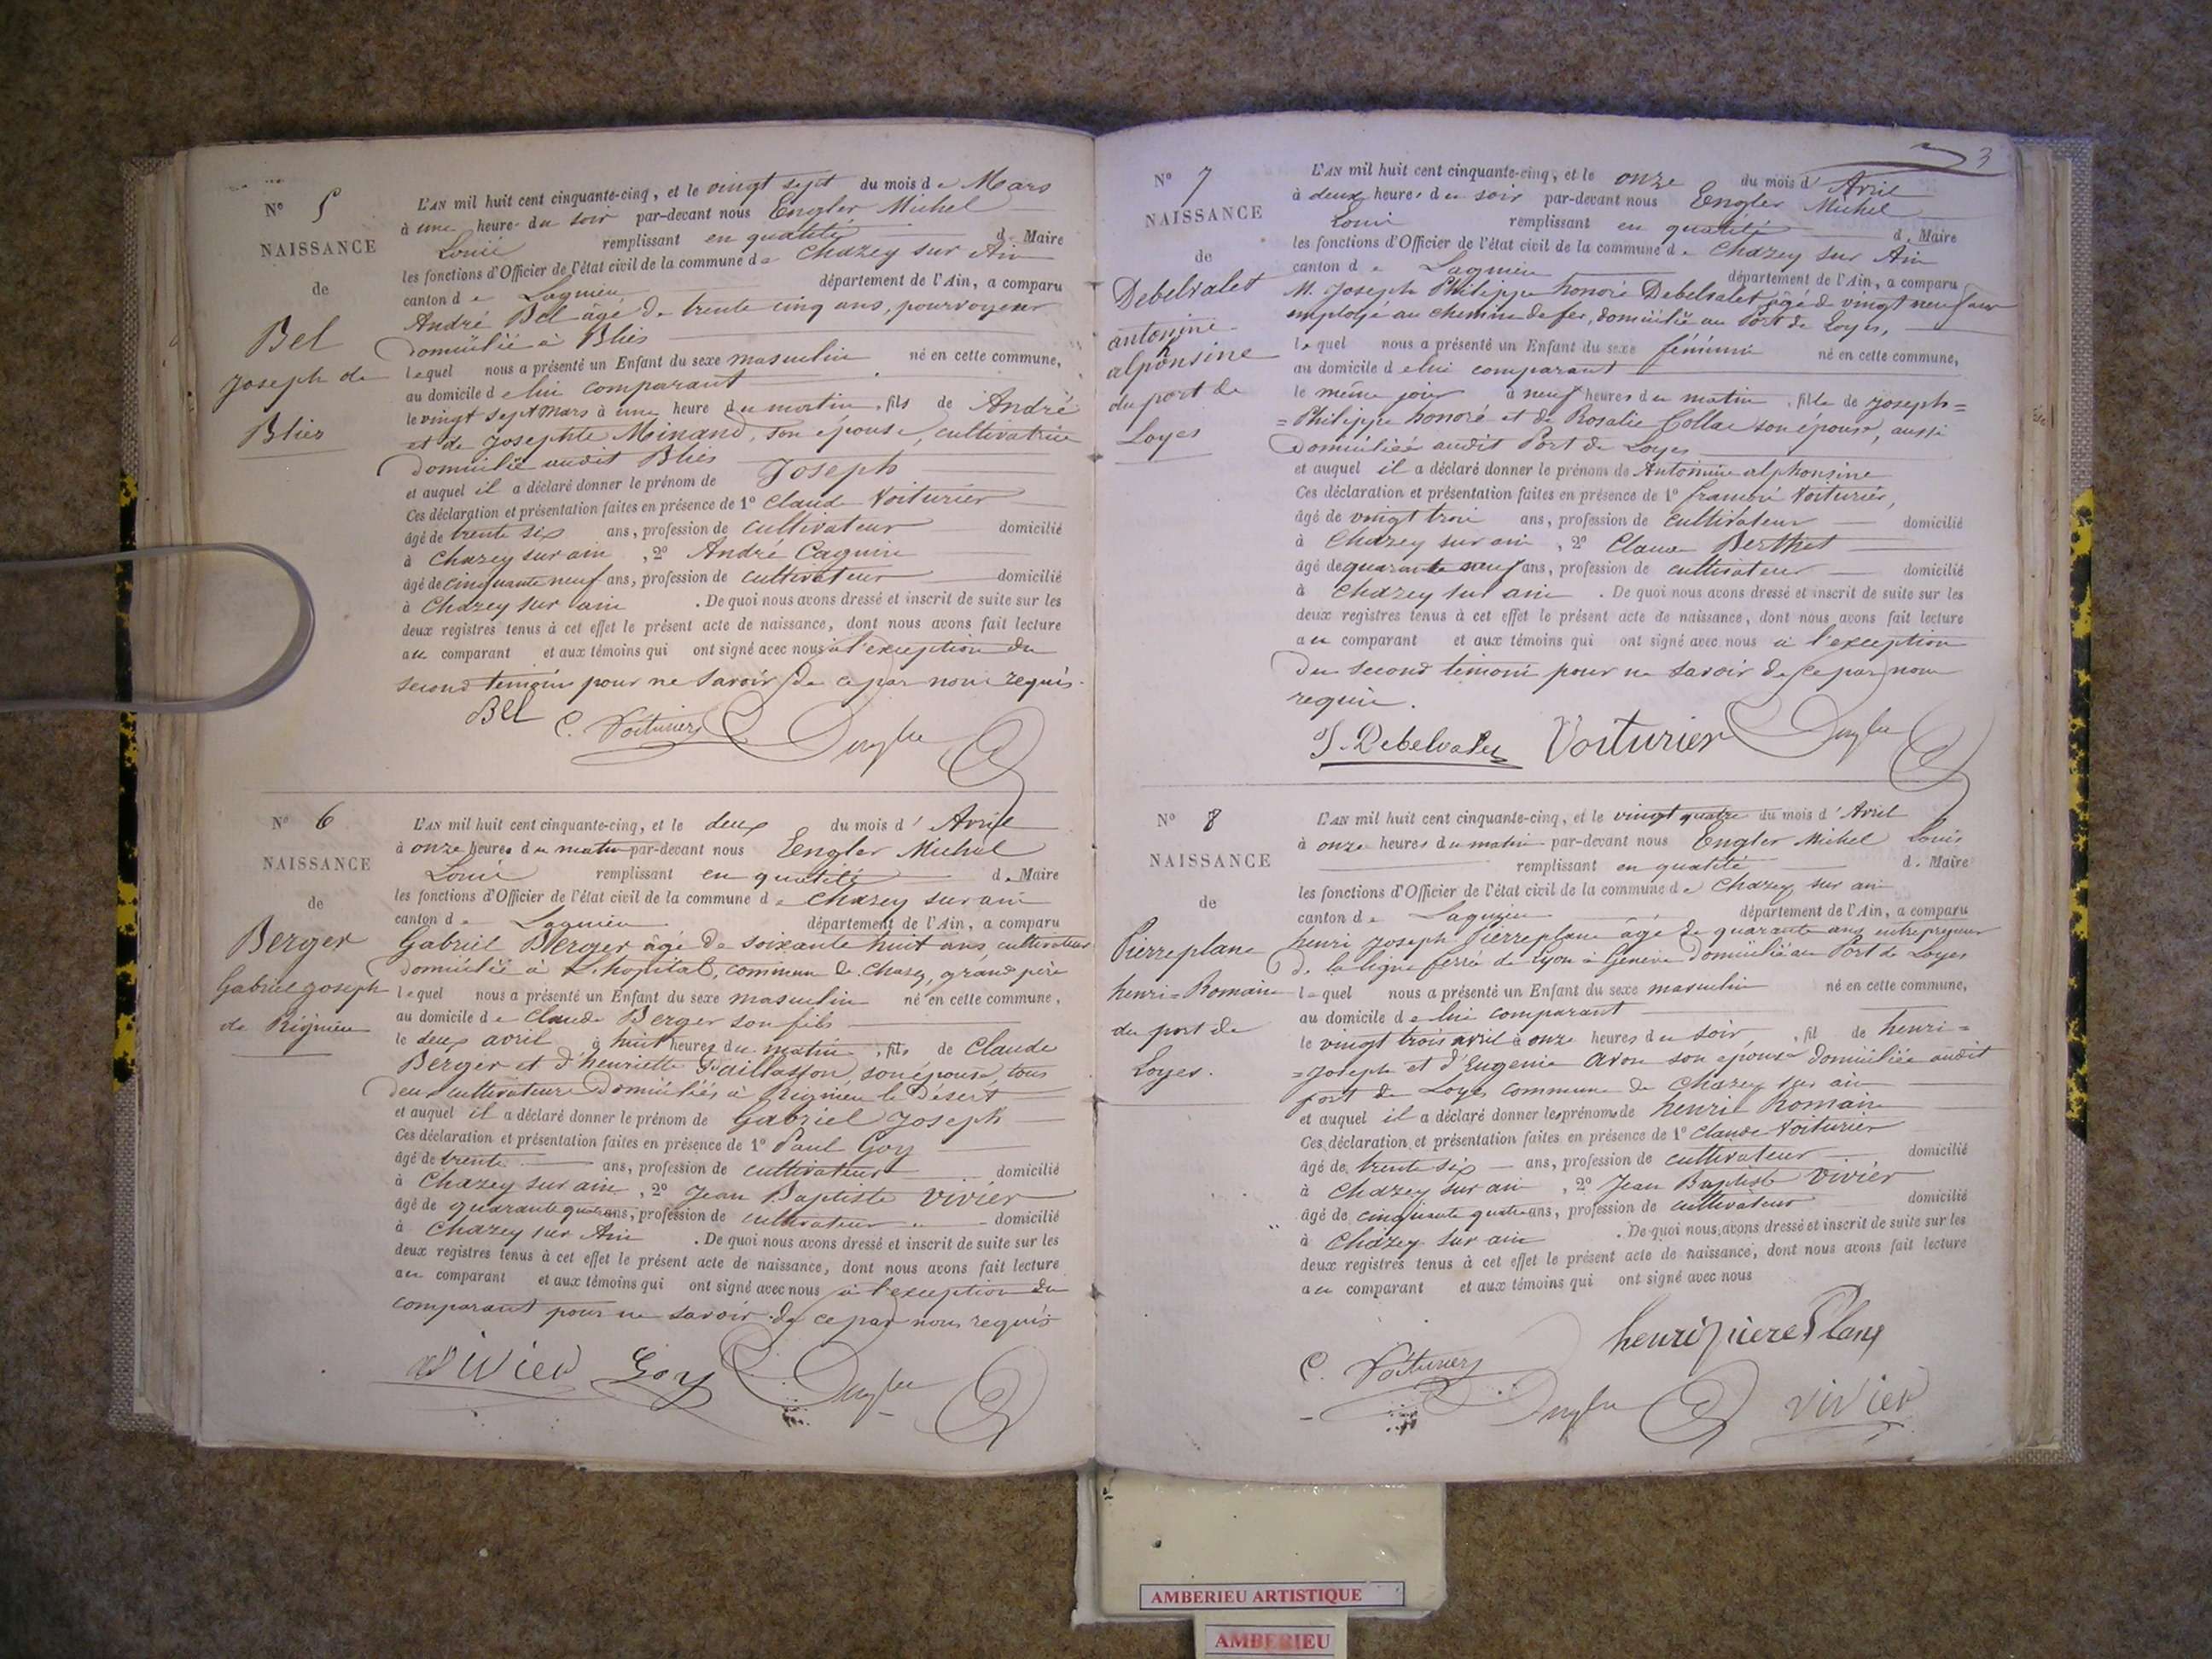 N° 5
NAISSANCE
de
Bel
Joseph de
Blies
L'AN mil huit cent cinquante-cinq, et le vingt sept du mois de Mars
à une heure du soir par-devant nous Engler Michel
Louis remplissant en qualité de Maire
les fonctions d'Officier de l'état civil de la commune de Chazey sur Ain
canton de Lagnieu département de l'Ain, a comparu
André Bel âgé de trente cinq ans, pourvoyeur
domicilié à Blies
lequel nous a présenté un Enfant du sexe masculin né en cette commune,
au domicile de lui comparant
le vingt sept Mars à une heure du matin, fils de André
et de Josephte Minand, son épouse, cultivatrice
domiciliée audit Blies
et auquel il a déclaré donner le prénom de Joseph
Ces déclaration et présentation faites en présence de 1° Claude Voiturier
âgé de trente six ans, profession de cultivateur domicilié
à Chazey sur ain, 2° André Caguin
âgé de cinquante neuf ans, profession de cultivateur domicilié
à Chazey sur ain. De quoi nous avons dressé et inscrit de suite sur les
deux registres tenus à cet effet le présent acte de naissance, dont nous avons fait lecture
au comparant et aux témoins qui ont signé avec nous à l'exception du
second temoins pour ne savoir de ce par nous requis.
Bel C. Voiturier Engler
N° 6
NAISSANCE
de
Berger
Gabriel Joseph
de Rignieu
L'AN mil huit cent cinquante-cinq, et le deux du mois d'Avril
à onze heures du matin par-devant nous Engler Michel
Louis remplissant en qualité de Maire
les fonctions d'Officier de l'état civil de la commune de Chazey sur ain
canton de Lagnieu département de l'Ain, a comparu
Gabriel Berger âgé de soixante huit ans, cultivateur
domicilié à L'hopital, commune de Chazey, grand père
lequel nous a présenté un Enfant du sexe masculin né en cette commune,
au domicile de Claude Berger son fils
le deux avril à huit heures du matin, fils de Claude
Berger et d'henriette Paillasson, son épouse, tous
deux cultivateurs domiciliés à Rignieu le Désert
et auquel il a déclaré donner le prénom de Gabriel Joseph
Ces déclaration et présentation faites en présence de 1° Paul Goy
âgé de trente ans, profession de cultivateur domicilié
à Chazey sur ain, 2° Jean Baptiste Vivier
âgé de quarante quatre ans, profession de cultivateur domicilié
à Chazey sur Ain. De quoi nous avons dressé et inscrit de suite sur les
deux registres tenus à cet effet le présent acte de naissance, dont nous avons fait lecture
au comparant et aux témoins qui ont signé avec nous à l'exception du
comparant pour ne savoir de ce par nous requis
Vivier Goy Engler
3
N° 7
NAISSANCE
de
Debelvalet
antonine
alphonsine
du port de
Loyes
L'AN mil huit cent cinquante-cinq, et le onze du mois d'Avril
à deux heures du soir par-devant nous Engler Michel
Louis remplissant en qualité de Maire
les fonctions d'Officier de l'état civil de la commune de Chazey sur Ain
canton de Lagnieu département de l'Ain, a comparu
M. Joseph Philippe honoré Debelvalet âgé de vingt neuf ans
employé au chemin de fer, domicilié au Port de Loyes,
lequel nous a présenté un Enfant du sexe féminin né en cette commune,
au domicile de lui comparant
le même jour à neuf heures du matin, fille de Joseph=
=Philippe honoré et de Rosalie Collac son épouse, aussi
domiciliée audit Port de Loyes
et auquel il a déclaré donner le prénom de Antonine alphonsine
Ces déclaration et présentation faites en présence de 1° françois Voiturier,
âgé de vingt trois ans, profession de cultivateur domicilié
à Chazey sur ain, 2° Claude Berthet
âgé de quarante neuf ans, profession de cultivateur domicilié
à Chazey sur ain. De quoi nous avons dressé et inscrit de suite sur les
deux registres tenus à cet effet le présent acte de naissance, dont nous avons fait lecture
au comparant et aux témoins qui ont signé avec nous à l'exception
du second témoin pour ne savoir de ce par nous
requis.
J. Debelvalet Voiturier Engler
N° 8
NAISSANCE
de
Pierreplane
henri=Romain
du port de
Loyes.
L'AN mil huit cent cinquante-cinq, et le vingt quatre du mois d'Avril
à onze heures du matin par-devant nous Engler Michel Louis
remplissant en qualité de Maire
les fonctions d'Officier de l'état civil de la commune de Chazey sur ain
canton de Lagnieu département de l'Ain, a comparu
henri Joseph Pierreplane âgé de quarante ans entrepreneur
de la ligne ferrée de Lyon à Genève domicilié au Port de Loyes
lequel nous a présenté un Enfant du sexe masculin né en cette commune,
au domicile de lui comparant
le vingt trois avril à onze heures du soir, fil de henri=
=Joseph et d'Eugenie Avon son épouse domiciliée audit
port de Loyes commune de Chazey sur ain
et auquel il a déclaré donner les prénoms de henri Romain
Ces déclaration et présentation faites en présence de 1° Claude Voiturier
âgé de trente six ans, profession de cultivateur domicilié
à Chazey sur ain, 2° Jean Baptiste Vivier
âgé de cinquante quatre ans, profession de cultivateur domicilié
à Chazey sur ain. De quoi nous avons dressé et inscrit de suite sur les
deux registres tenus à cet effet le présent acte de naissance, dont nous avons fait lecture
au comparant et aux témoins qui ont signé avec nous
henri piere Plane
C. Voiturier Engler Vivier
AMBERIEU ARTISTIQUE
AMBERIEU